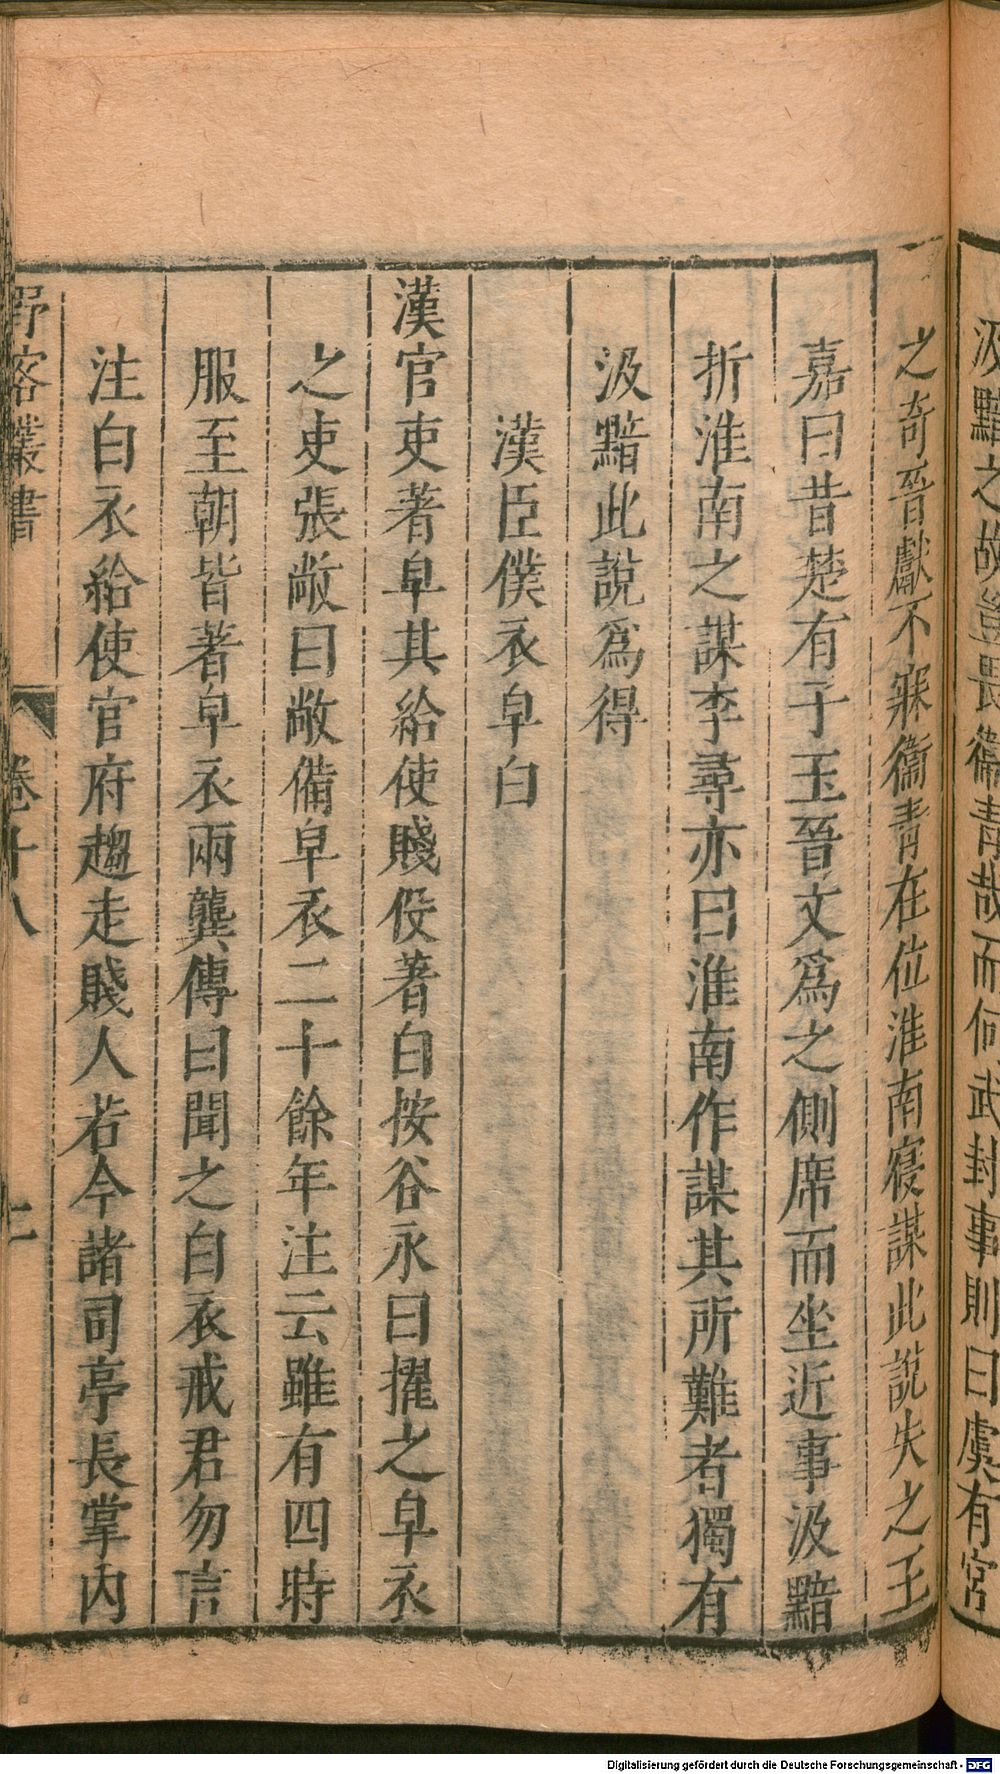 汲黯之故豈畏衞青哉而何武封事則曰虞有宮
之奇晉獻不寐衞青在位淮南寢謀此說失之王
嘉曰昔楚有子玉晉文爲之側席而坐近事汲黯
折淮南之謀李尋亦曰淮南作謀其所難者獨有
汲黯此說爲得
漢臣僕衣皁白
漢官吏著皁其給使賤役著白按谷永曰擢之皁衣
之吏張敞曰敞備皁衣二十餘年注云雖有四時
服至朝皆著皁衣兩龔傳曰聞之白衣戒君勿言
注白衣給使官府趨走賤人若今諸司亭長掌內
野客叢書 卷十八
Digitalisierung gefördert durch die Deutsche Forschungsgemeinschaft - DFG